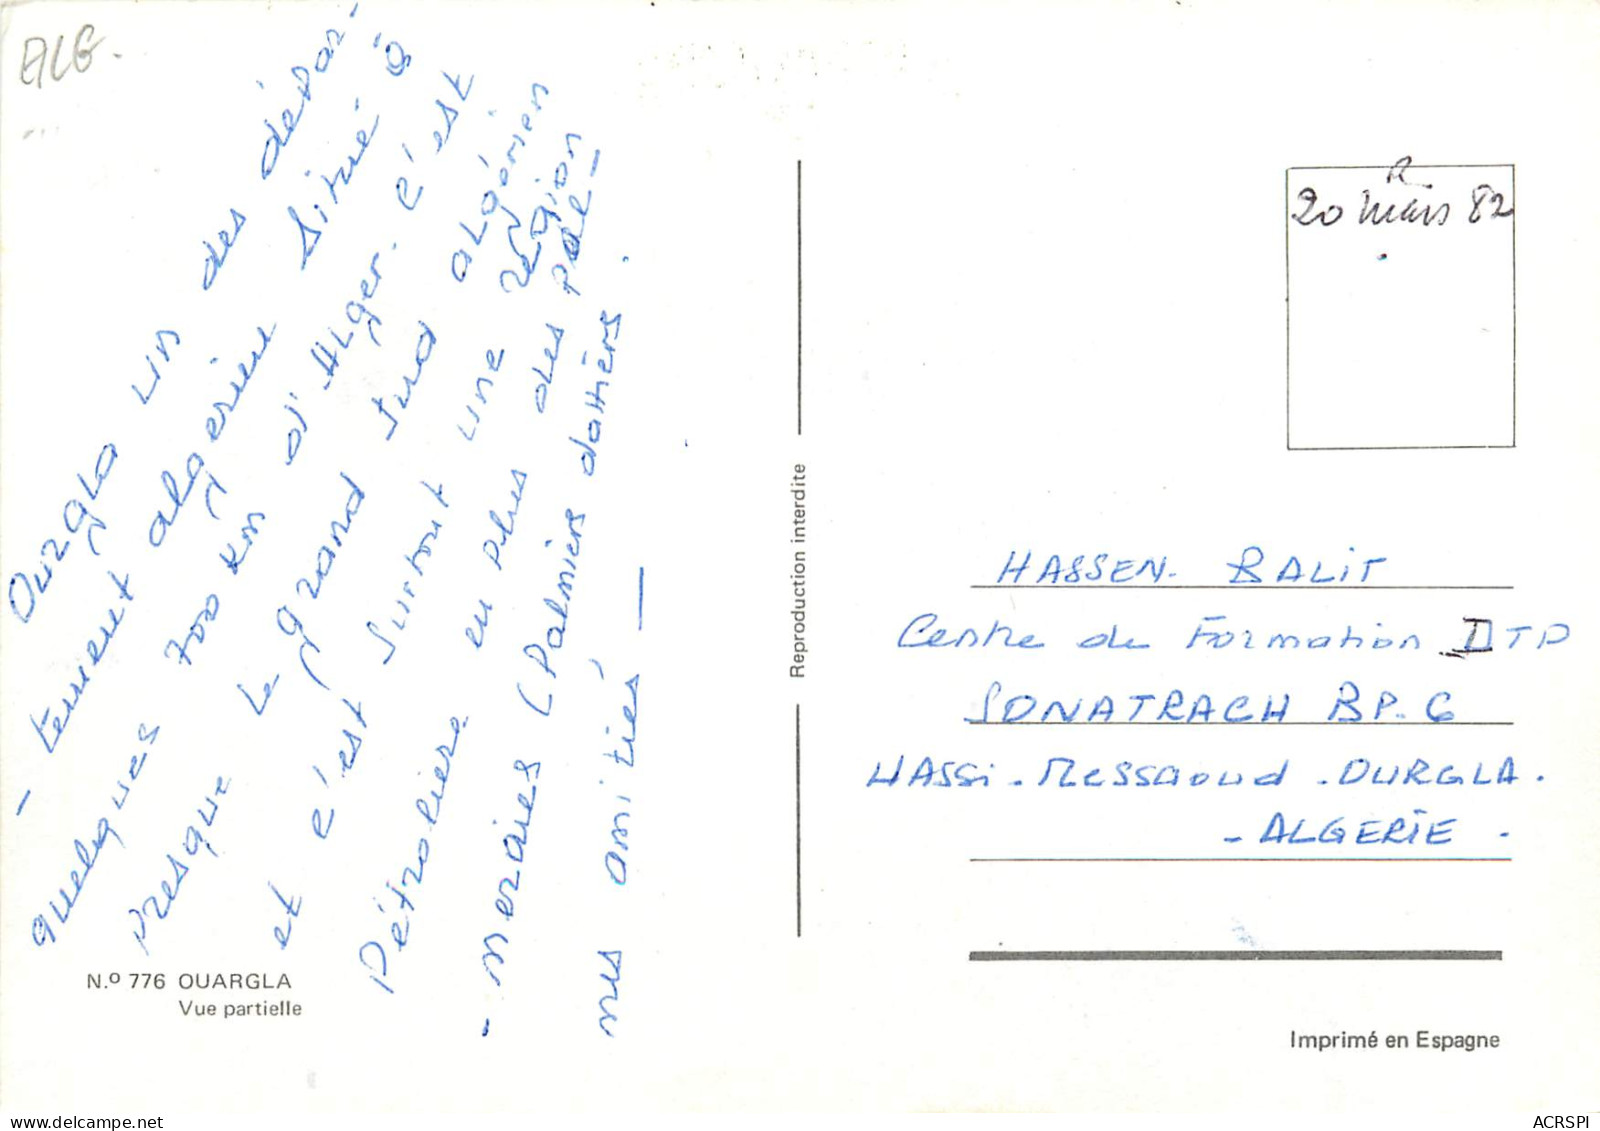 ALG.
Ourgla un des dépar-
- tement algerien situé à
quelques 700 km d'Alger. c'est
presque le grand sud algérien
et c'est surtout une région
Pétroliere en plus des pal-
- meraies (Palmiers dattiers.
mes amitiés —
N.º 776 OUARGLA
Vue partielle
Reproduction interdite
R
20 mars 82
HASSEN. BALIT
Centre de Formation DTP
SONATRACH BP. 6
HASSI - Messaoud - OURGLA.
- ALGERIE -
Imprimé en Espagne
www.delcampe.net
ACRSPI